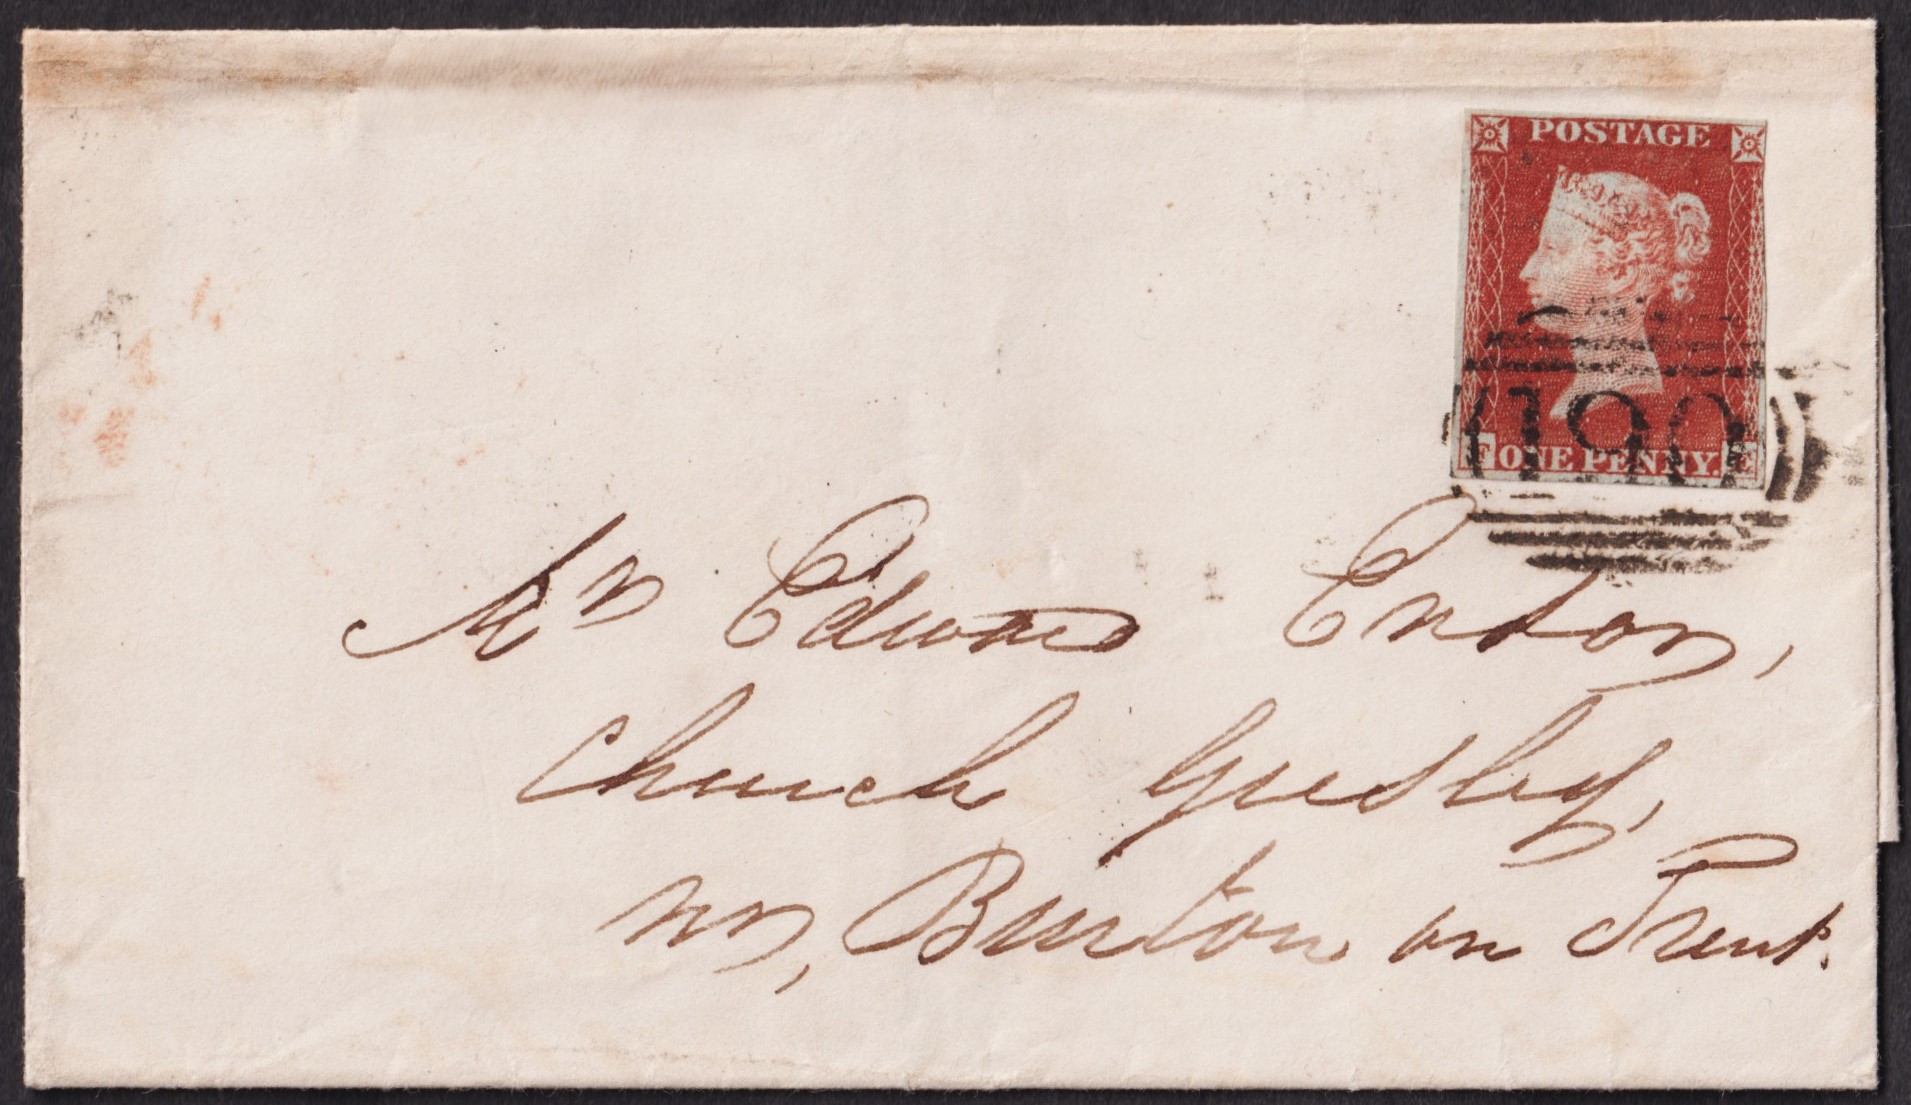 POSTAGE
F ONE PENNY. E
190
Mr Edward Enson,
Church Gresley,
nr, Burton on Trent.